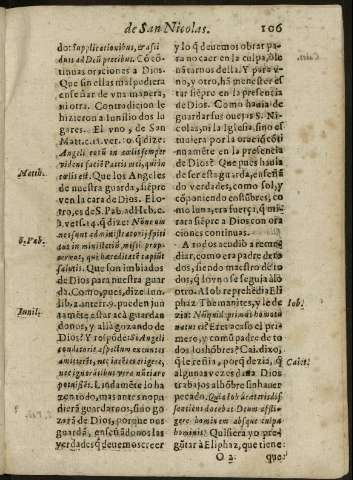 de San Nicolas. 106
do: supplicationibus, & assi
duis ad Deũ precibus. Cõ cõ
tinuas oraciones a Dios.
Que sin ellas mal pudiera
enseñar de vna manera,
ni otra. Contradicion le
hizieron a Iunilio dos lu
gares. El vno, y de San
Matt. c. 11. ver. 10. q̃ dize:
Angeli eorũ in cœlis semper
vident faciẽ Patris mei, qui in
cœlis est. Que los Angeles
de nuestra guarda, siẽpre
vẽn la cara de Dios. El o-
tro, es de S. Pab. ad Heb. c.
1. vers. 14. q̃ dize: Nõne om
nes sunt administratorij spiri
tus in ministeriũ, missi prop
ter eos, qui hæreditatẽ capiũt
salutis. Que son imbiados
de Dios para nuestra guar
da. Como, pues, dize Iuni-
lib. 2. inter. 9. pueden jun
tamẽte estar acà guardan
donos, y allà gozando de
Dios? Y respõde: Si Angeli
conditoris aspectum exeuntes
amitterẽt, nec intelle erigere,
nec ignorãtibus vera nũtiare
potuissẽt. Lindamẽte lo ha
zen todo, mas antes no pu
dierã guardarnos, si no go
zarã de Dios, porque nos
guardã, enseñãdonos las
verdades q̃ deuemos creer
y lo q̃ deuemos obrar pa-
ra no caer en la culpa, ò le
uãtarnos della. Y para v-
no, y otro, hã menester es
tar siẽpre en la presencia
de Dios. Como hauia de
guardar sus ouejas S. Ni-
colas, ni la Iglesia, sino es-
tuuiera por la oraciõ cõti
nuamẽte en la presencia
de Dios? Que pues hauia
de ser estaguarda, enseñã
do verdades, como sol, y
cõponiendo costũbres, co
mo luna, era fuerça, q̃ mi
rara siẽpre a Dios con ora
ciones continuas.
A todos acudiò a reme-
diar, como era padre de to
dos, siendo maestro de to
dos, q̃ lo vno se seguia a lo
otro. A Iob reprehẽdia Eli
phaz Themanites, y le de
zia: Nũquid primus homo tu
natus es? Eres acaso el pri-
mere, y comũ padre de to
dos los hõbres? Cai. dixo,
q̃ le reñia, porq̃ dezia, q̃
algunas vezes daua Dios
trabajos al hõbre sin hauer
pecado. Quia Iob de cæteris dis-
sentiens docebat Deum afflige-
re hominem absque culpa
hominis. Quisiera yo pre-
gũtar a Eliphaz, que tiene
O 2 que:
Matth.
S. Pab.
Iunil.
Caiet.
Iob.
Caiet.